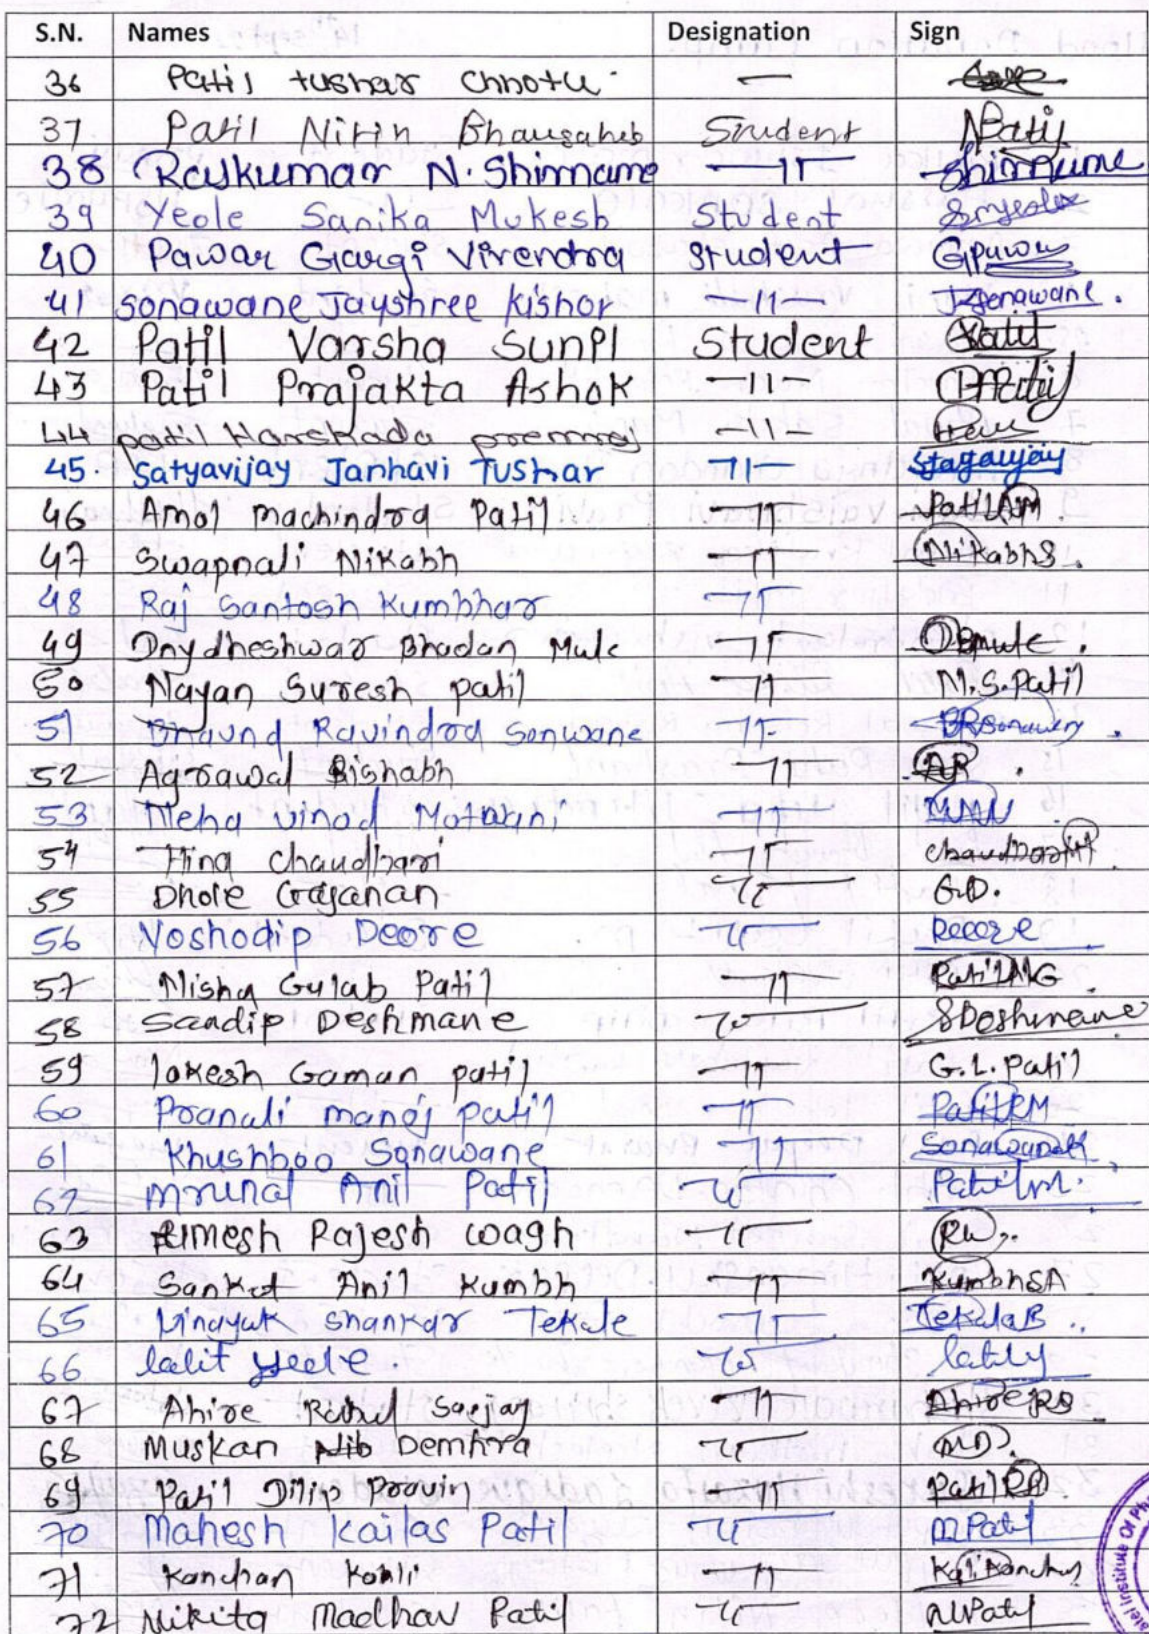 S.N. Names Designation Sign
36 Patil tushar Chhotu —
37 Patil Nitin Bhausaheb Student NPatil
38 Rajkumar N. Shirname —11— Shirname
39 Yeole Sanika Mukesh Student Smyeole
40 Pawar Gargi Virendra Student GPawar
41 Sonawane Jayshree Kishor —11— JSonawane.
42 Patil Varsha Sunil Student Patil
43 Patil Prajakta Ashok —11— PAPatil
44 patil Harshada premraj —11—
45. Satyavijay Janhavi Tushar —11—
46 Amol machindra Patil —11— PatilAM
47 Swapnali Nikabh —11— NikabhS.
48 Raj Santosh Kumbhar —11—
49 Dnydheshwar Bhadan Male —11—
50 Nayan Suresh patil —11— M.S.Patil
51 Ravindra Sonwane —11— BRSonawane
52 Agrawal Rishabh —11— AR.
53 Neha vinod Motwani —11— MNV
54 Hina Chaudhari —11— ChaudhariH
55 Dhole Gajanan —11— G.D.
56 Yoshodip Deore —11—
57 Misha Gulab Patil —11— PatilMG
58 Sandip Deshmane —11— SDeshmane
59 lokesh Gaman patil —11— G.L.Patil
60 Pranali manoj patil —11— PatilPM
61 Khushboo Sonawane —11— SonawaneK
62 mrunal Anil Patil —11— Patilm.
63 Rajesh wagh —11— RW.
64 Sanket Anil Kumbh —11— KumbhSA
65 Vinayak Shankar Tekale —11—
66 lalit yeole —11— lality
67 Ahire Rahul Sanjay —11— AhireRS
68 Muskan Demhra —11— MD.
69 Patil Dilip Pravin —11—
70 Mahesh Kailas Patil —11— MPatil
71 Kanchan Kohli —11—
72 Nikita Madhav Patil —11— NMPatil